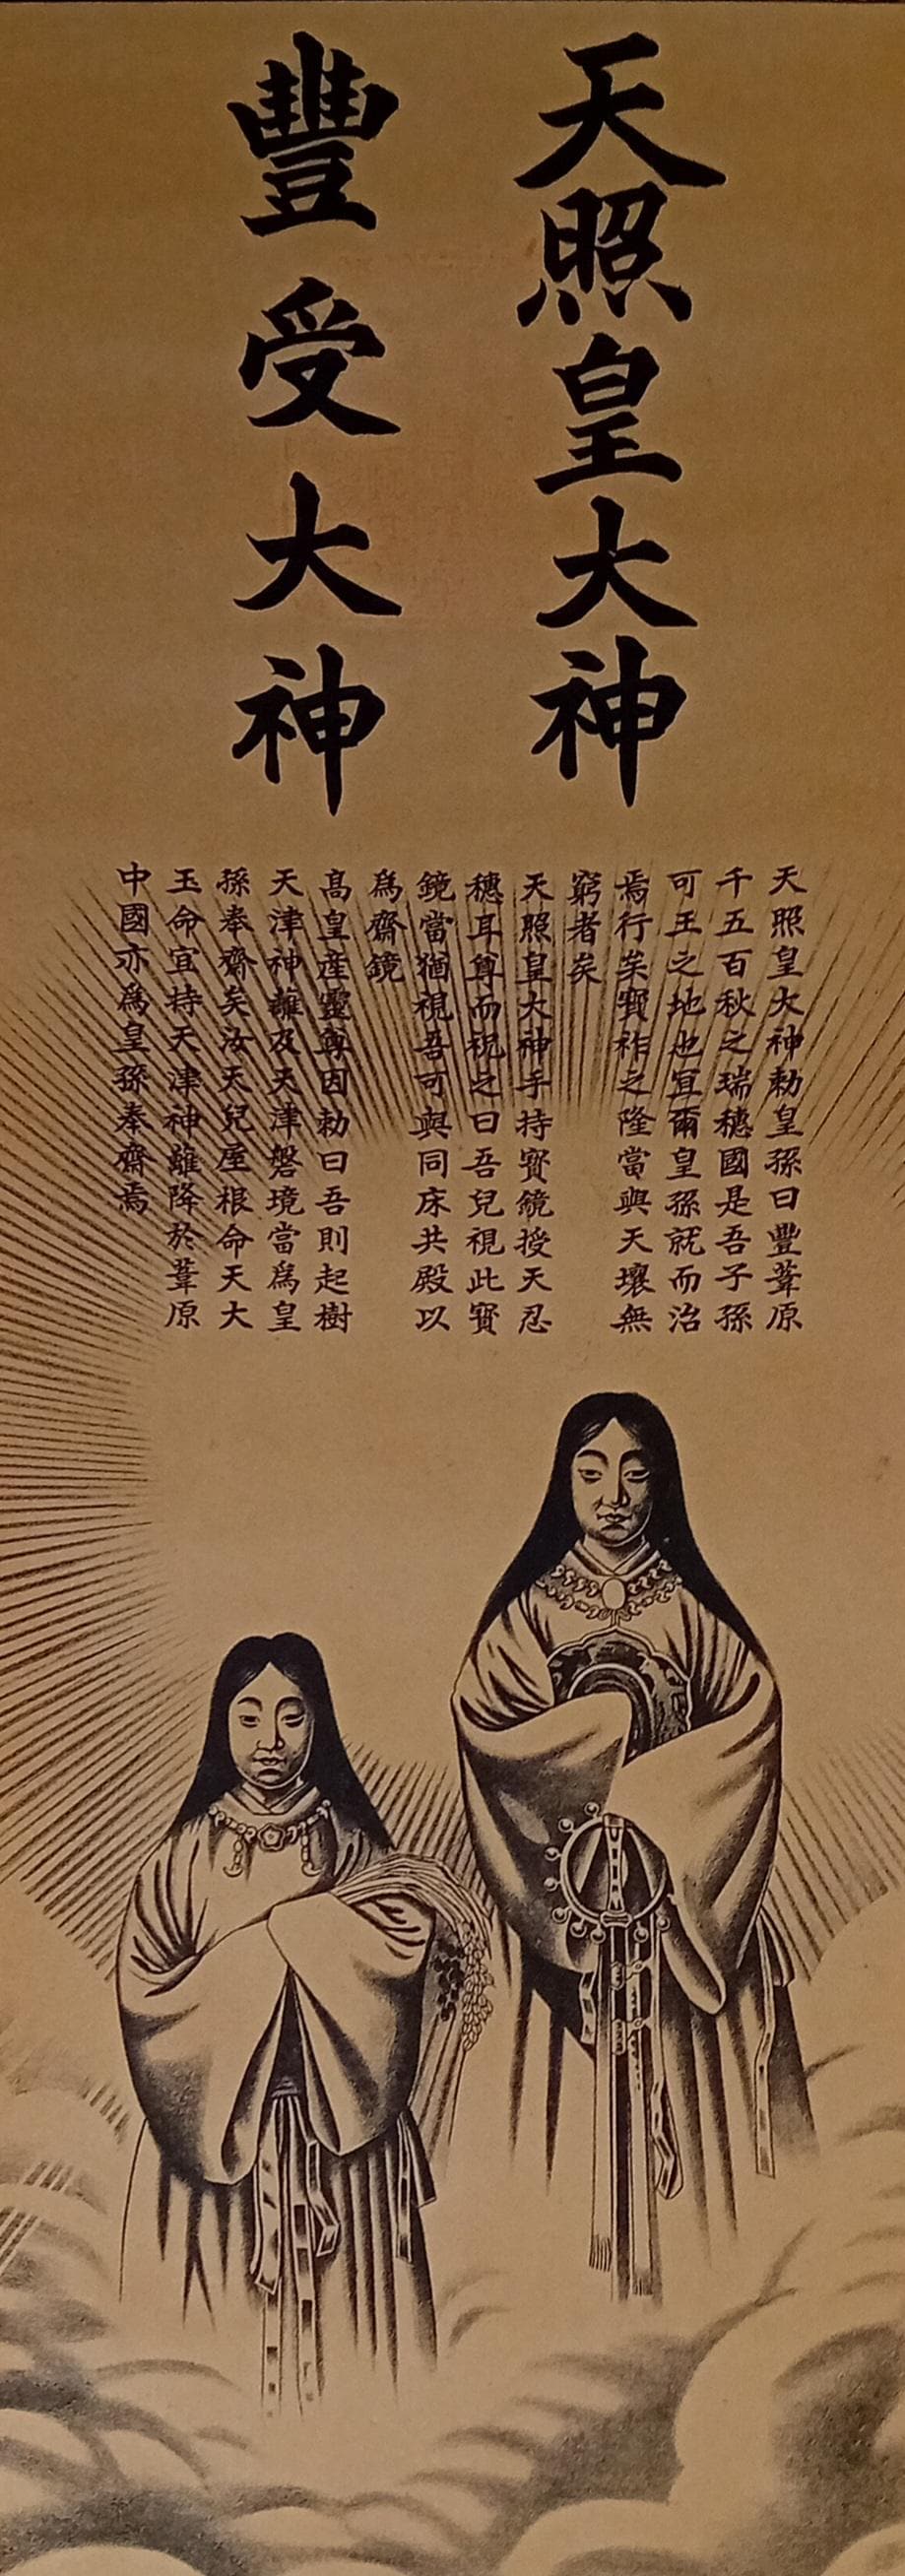 天照皇大神
豐受大神
天照皇大神勅皇孫曰豐葦原
千五百秋之瑞穗國是吾子孫
可王之地也宜爾皇孫就而治
焉行矣寶祚之隆當與天壤無
窮者矣
天照皇大神手持寳鏡授天忍
穗耳尊而祝之曰吾兒視此寳
鏡當猶視吾可與同床共殿以
爲齋鏡
高皇產靈尊因勅曰吾則起樹
天津神籬及天津磐境當爲皇
孫奉齋矣汝天兒屋根命天太
玉命宜持天津神籬降於葦原
中國亦爲皇孫奉齋焉